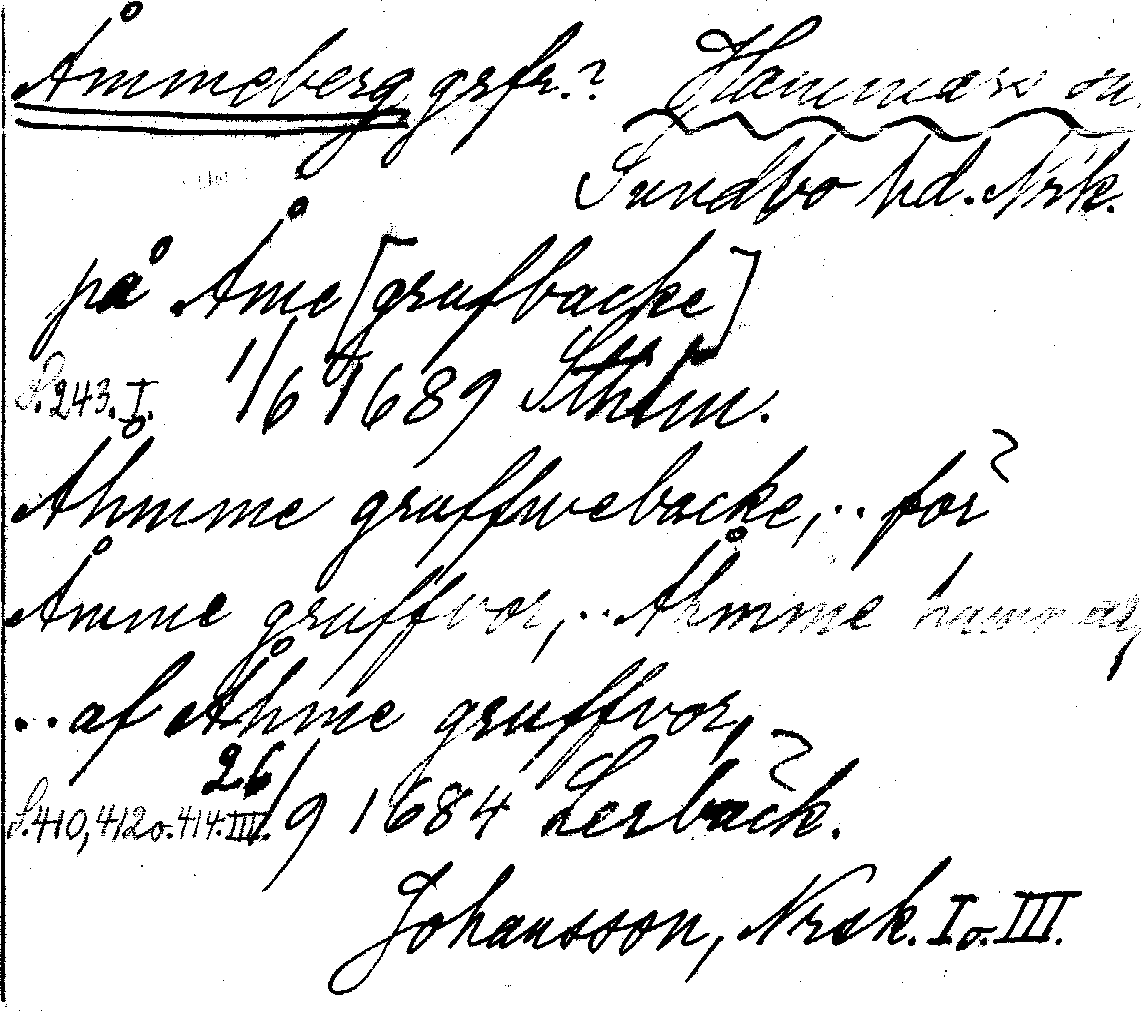 Åmmeberg grfr.? Hammars sn.
Sundbo hd. Nrk.
på Åme [grufbacke]
S. 243. I. 1/6 1689 Sthlm.
Åhmme gruffwebacke, .. för
Åmme gruffvor, .. Åhmme hammar,
.. af Åhme gruffvor,
S. 410, 412 o. 414. III. 26/9 1684 Lerbäck.
Johansson, Nrsk. I o. III.